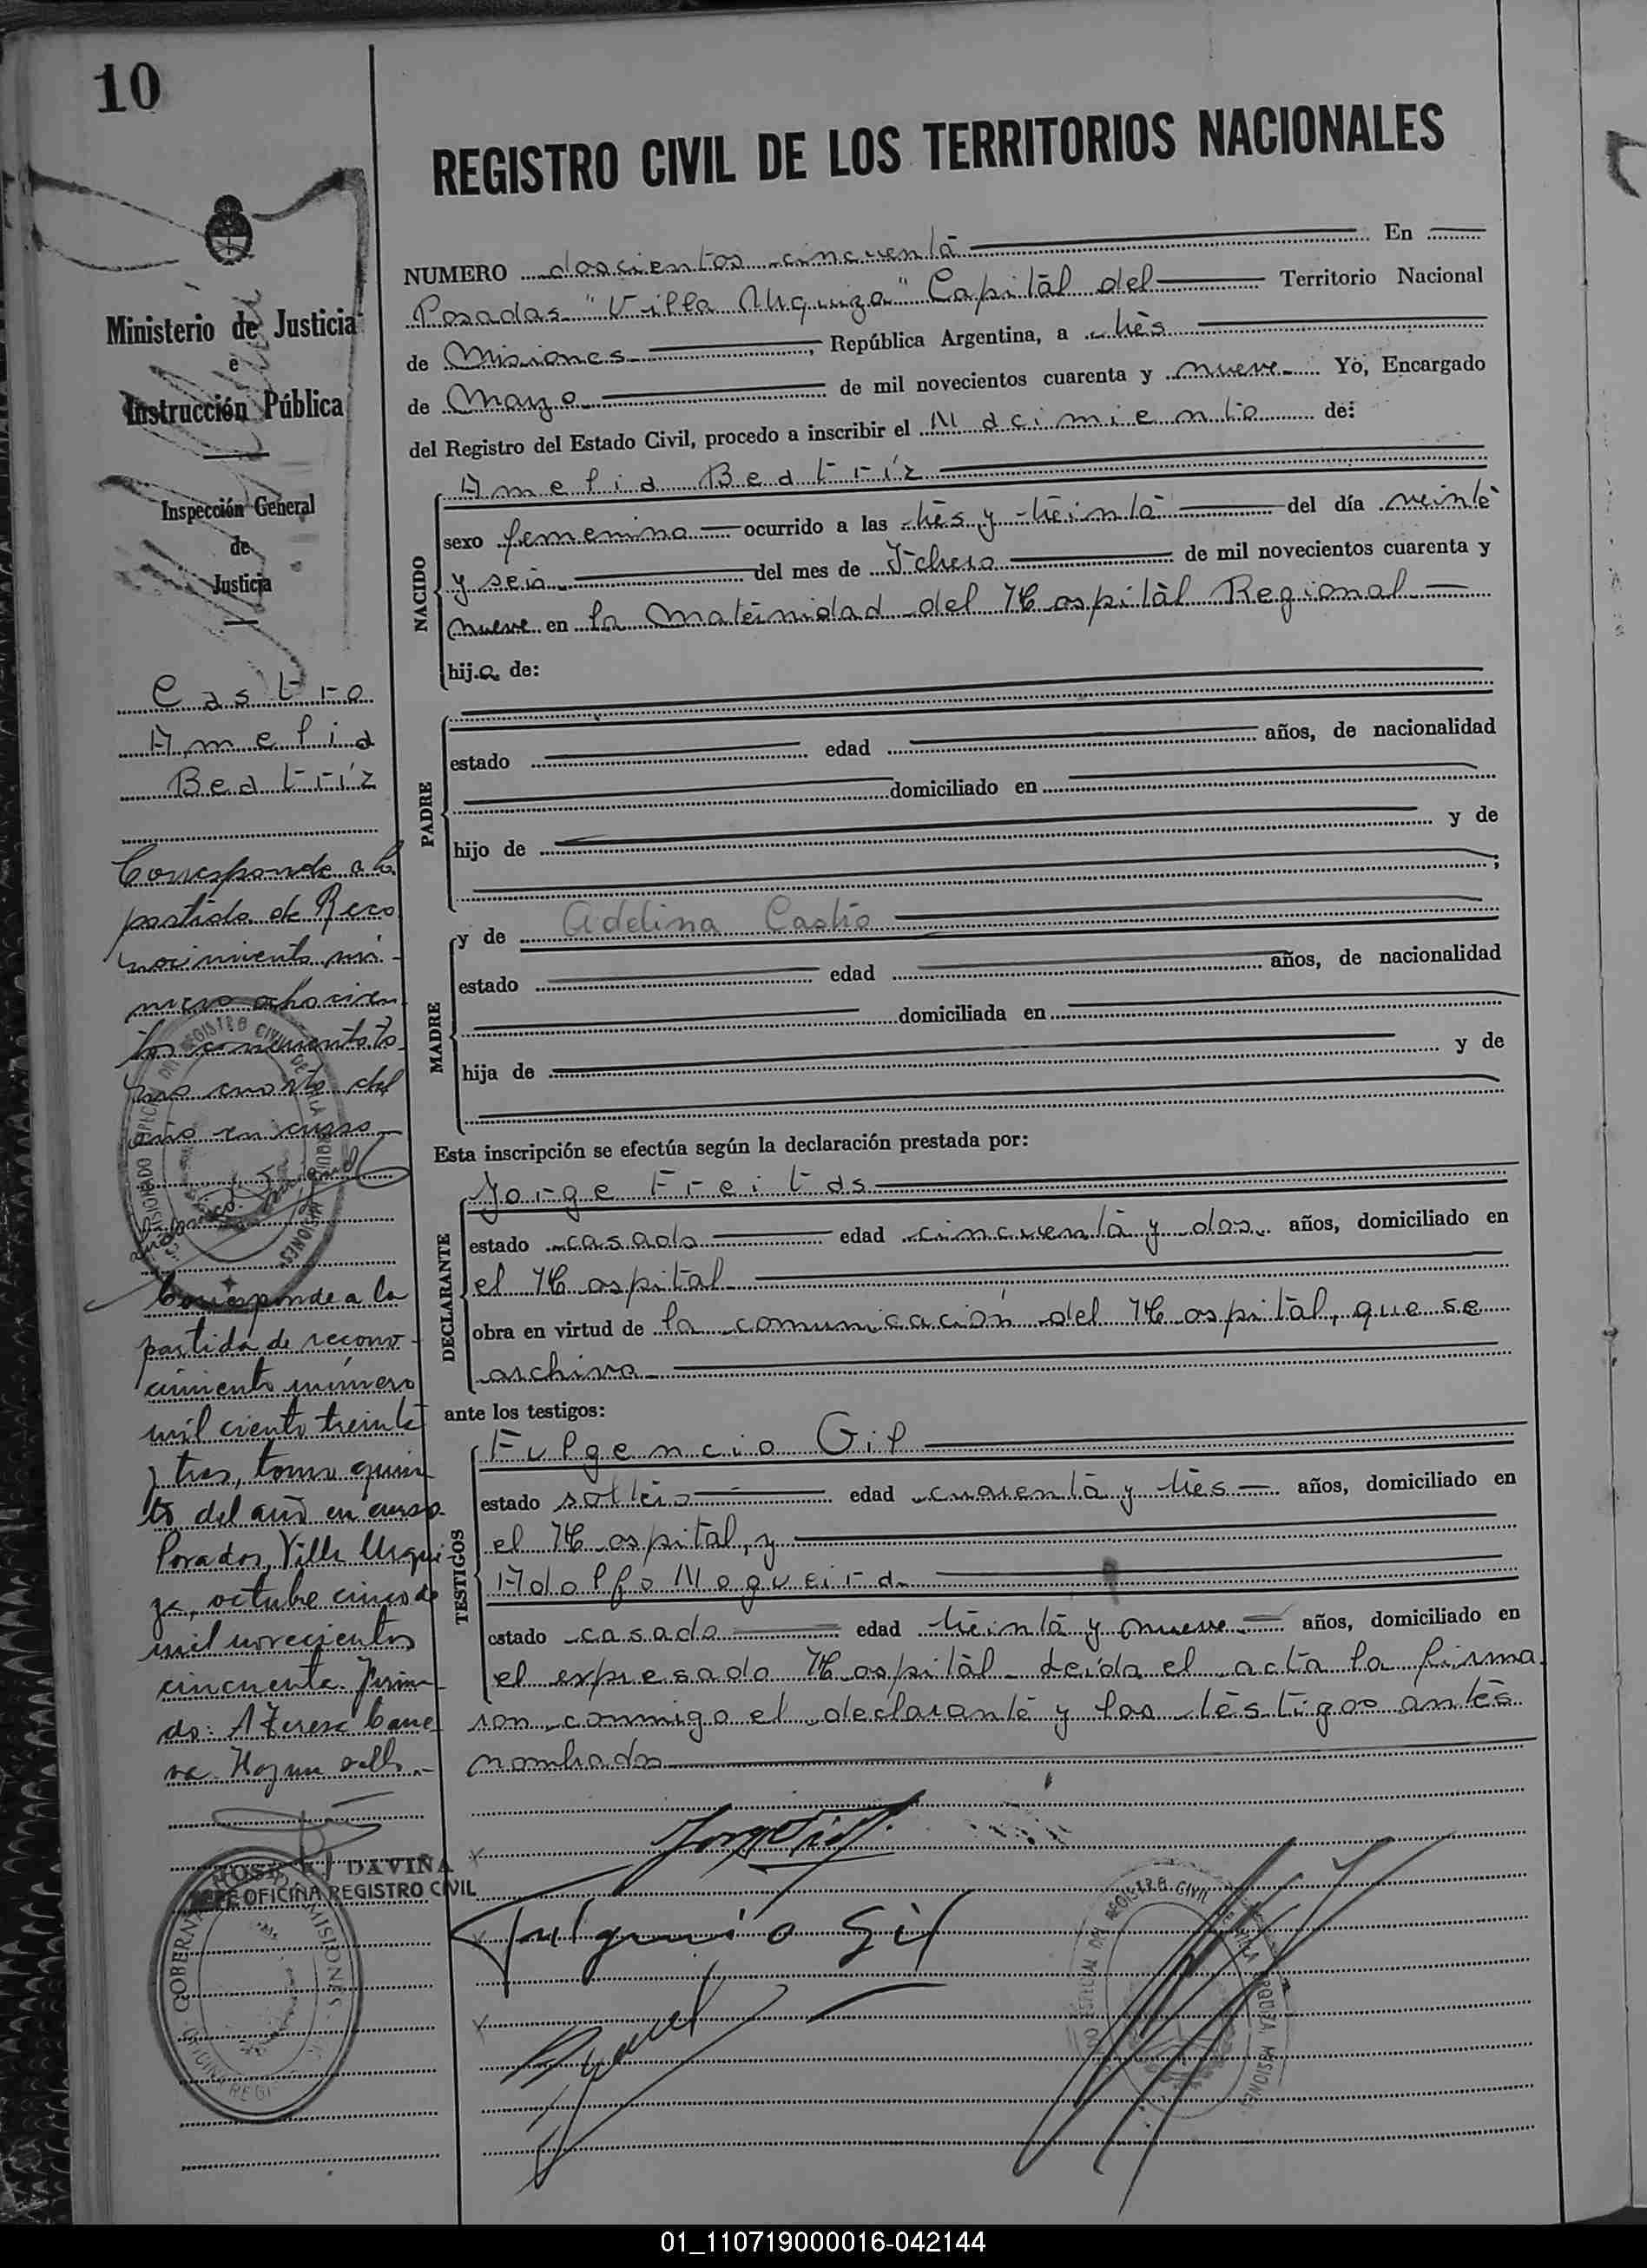 10
REGISTRO CIVIL DE LOS TERRITORIOS NACIONALES
Ministerio de Justicia
e
Instrucción Pública
Inspección General
de
Justicia
Castro
Amelia
Beatríz
Corresponde a la
partida de Reco
nocimiento nú-
mero ochocien
tos cincuenta to
mo cuarto del
año en curso
Corresponde a la
partida de recono-
cimiento número
mil ciento treinta
y tres, tomo quin
to del año en curso.
Posadas, Villa Urqui-
za, octubre cinco de
mil novecientos
cincuenta. Firma-
do: A Teresa Cane
va. Hay un sello.-
JOSE DAVIÑA
JEFE OFICINA REGISTRO CIVIL
GOBERNACION MISIONES
OFICINA REGI
NUMERO doscientos cincuenta En
Posadas "Villa Urquiza" Capital del Territorio Nacional
de Misiones, República Argentina, a tres
de Marzo de mil novecientos cuarenta y nueve Yo, Encargado
del Registro del Estado Civil, procedo a inscribir el Nacimiento de:
NACIDO
Amelia Beatríz
sexo femenino ocurrido a las tres y treinta del día veinte
y seis del mes de Febrero de mil novecientos cuarenta y
nueve en la Maternidad del Hospital Regional
hija de:
PADRE
estado edad años, de nacionalidad
domiciliado en
hijo de y de
;
MADRE
y de Adelina Castro
estado edad años, de nacionalidad
domiciliada en
hija de y de
Esta inscripción se efectúa según la declaración prestada por:
DECLARANTE
Jorge Freitas
estado casado edad cincuenta y dos años, domiciliado en
el Hospital
obra en virtud de la comunicación del Hospital, que se
archiva
ante los testigos:
TESTIGOS
Fulgencio Gil
estado soltero edad cuarenta y tres años, domiciliado en
el Hospital, y
Adolfo Nogueira
estado casado edad treinta y nueve años, domiciliado en
el expresado Hospital - Leída el acta la firma
ron conmigo el declarante y los testigos antes
nombrados
Fulgencio Gil
REGISTRO CIVIL
VILLA URQUIZA MISIONES
01_110719000016-042144